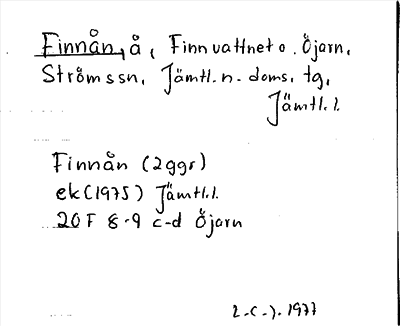 Finnån, å, Finnvattnet o. Öjarn,
Strömssn, Jämtl. n. doms. tg,
Jämtl. l.
Finnån (2ggr)
ek (1975) Jämtl.l.
20F 8-9 c-d Öjarn
1977